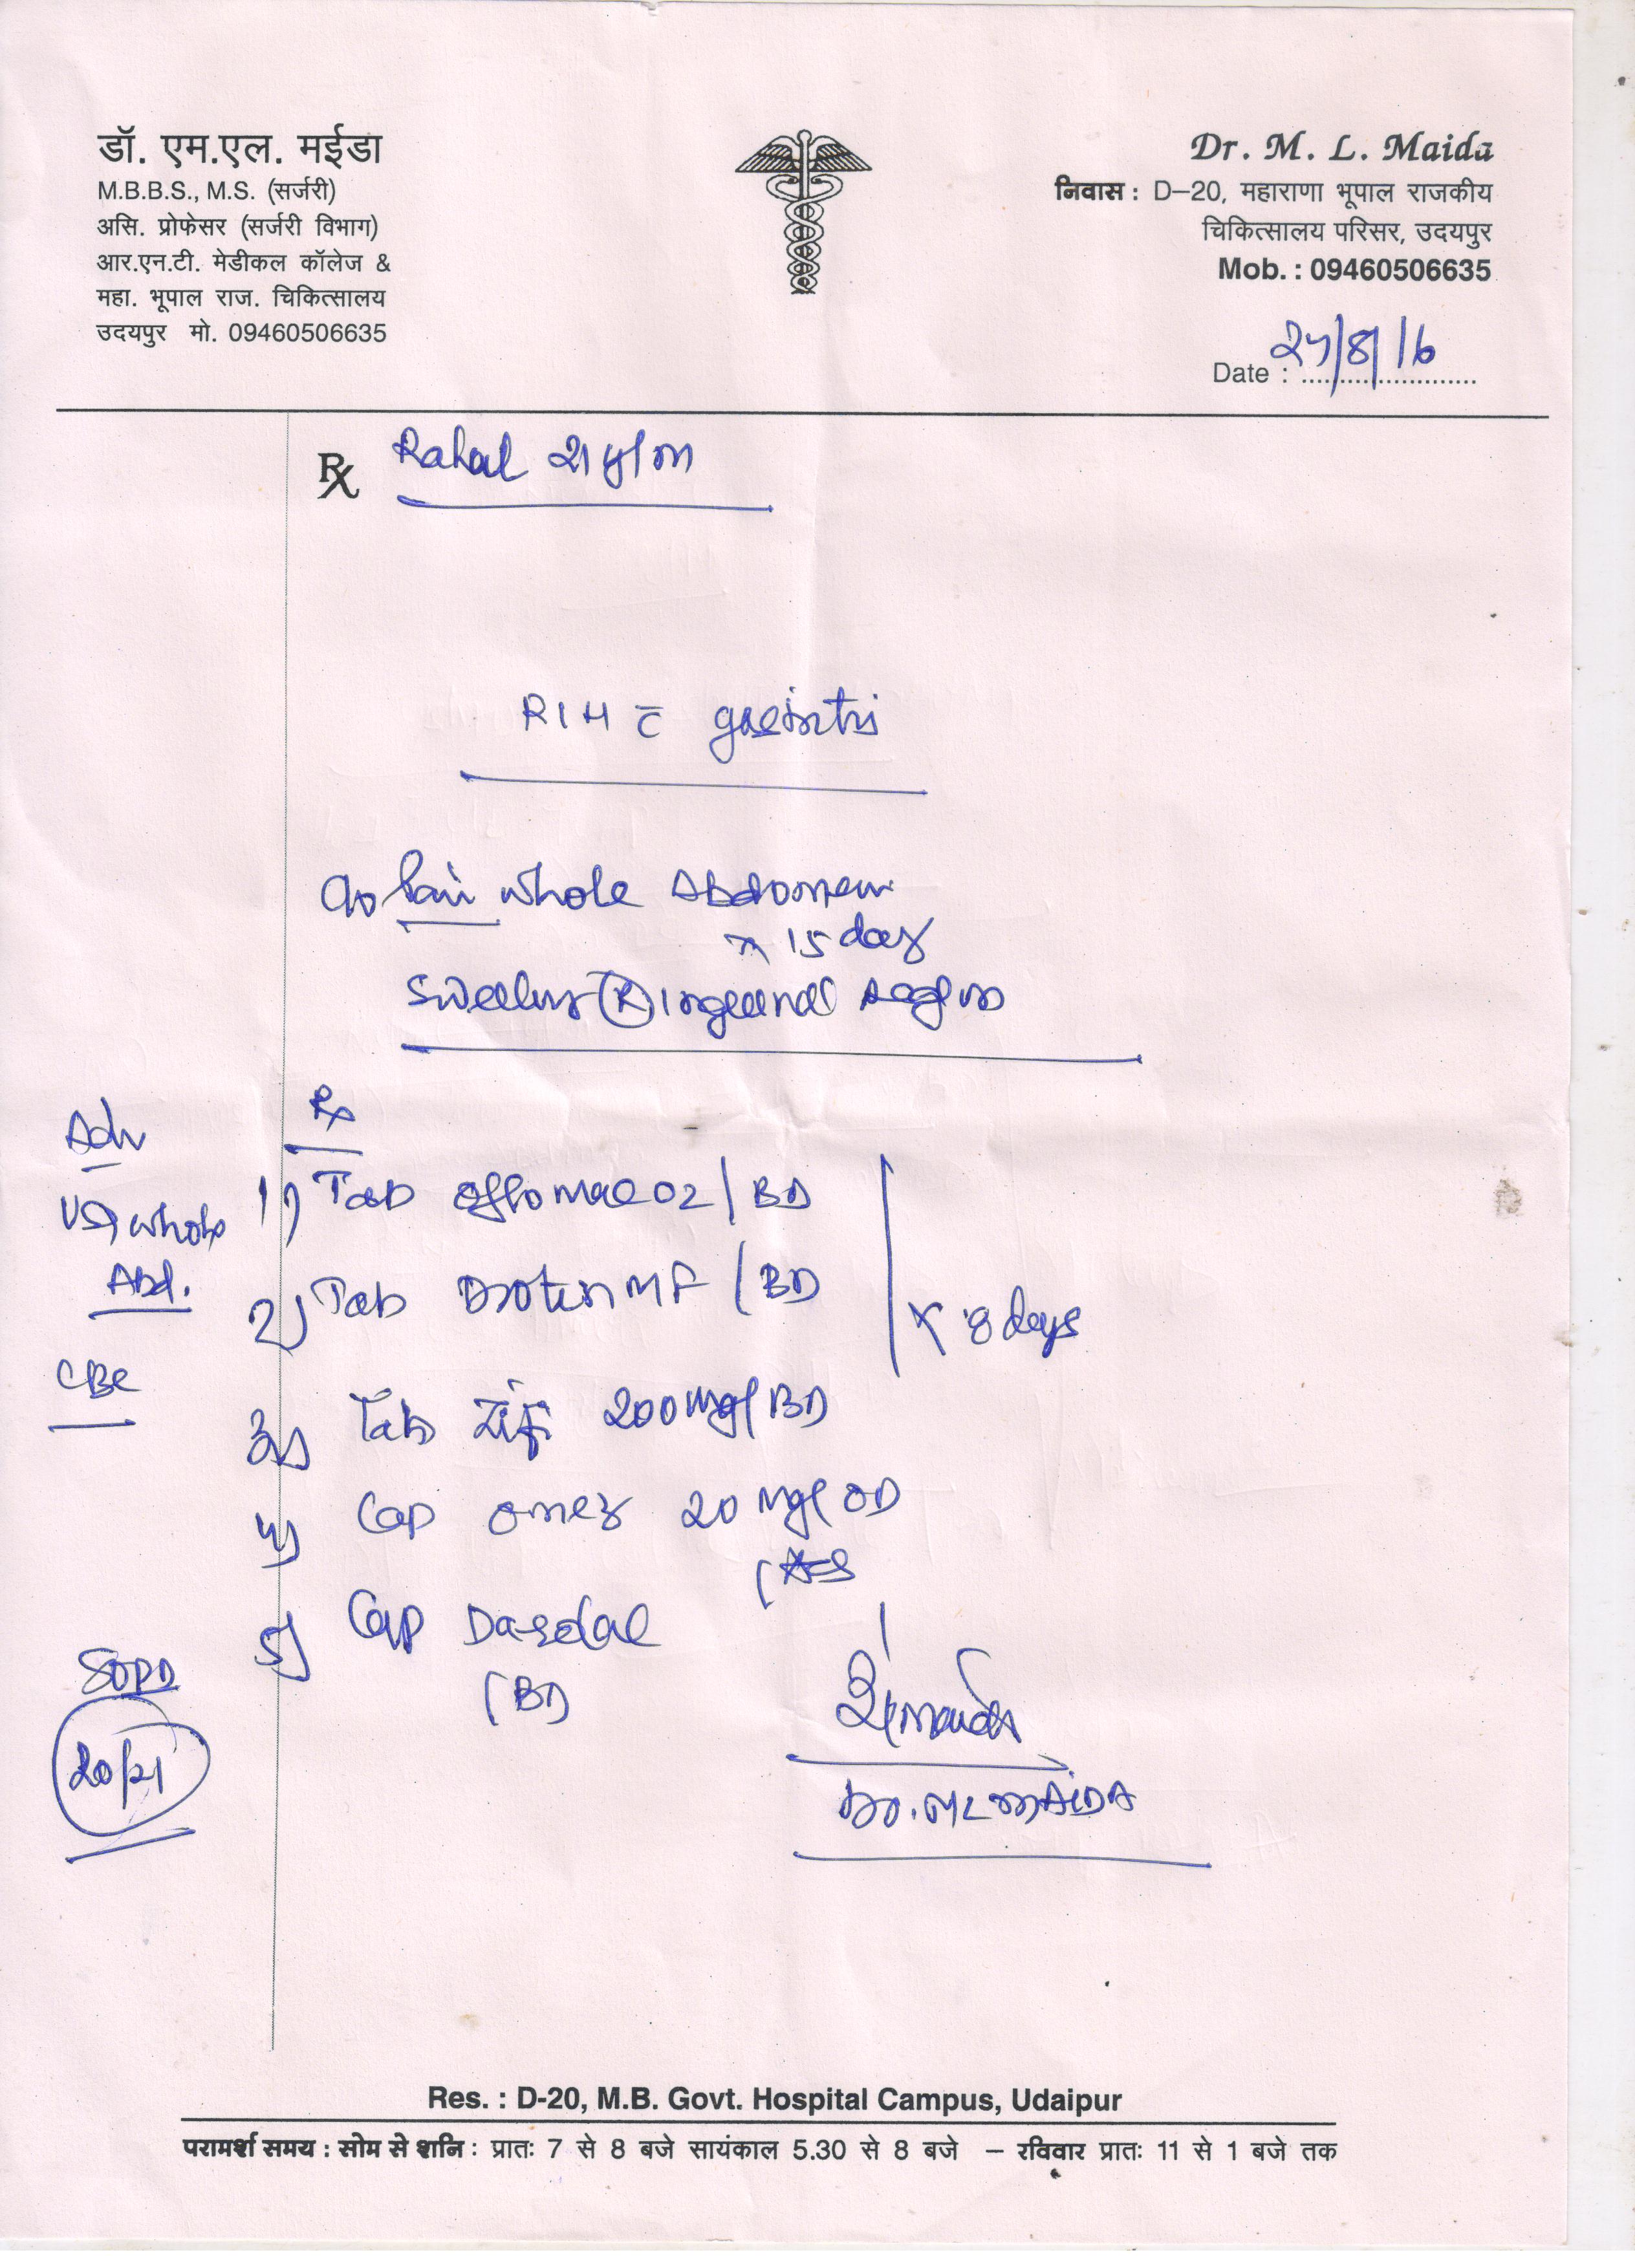 डॉ. एम.एल. मईडा
M.B.B.S., M.S. (सर्जरी)
असि. प्रोफेसर (सर्जरी विभाग)
आर.एन.टी. मेडीकल कॉलेज &
महा. भूपाल राज. चिकित्सालय
उदयपुर मो. 09460506635
Dr. M. L. Maida
निवास : D–20, महाराणा भूपाल राजकीय
चिकित्सालय परिसर, उदयपुर
Mob. : 09460506635
Date : /8/16
Rx Rahul
RIH c̄
c/o Pain whole Abdomen
x 15 days
Swelling (R) Inguinal Region
Adv
USG whole
Abd.
CBC
Rx
1) Tab Offomac OZ / BD
2) Tab Drotin MF / BD
x 8 days
3) Tab Zifi 200 mg / BD
4) Cap Omez 20 mg / OD
5) Cap
(BD)
SOPD
20/21
Dr. ML MAIDA
Res. : D-20, M.B. Govt. Hospital Campus, Udaipur
परामर्श समय : सोम से शनि : प्रातः 7 से 8 बजे सायंकाल 5.30 से 8 बजे – रविवार प्रातः 11 से 1 बजे तक